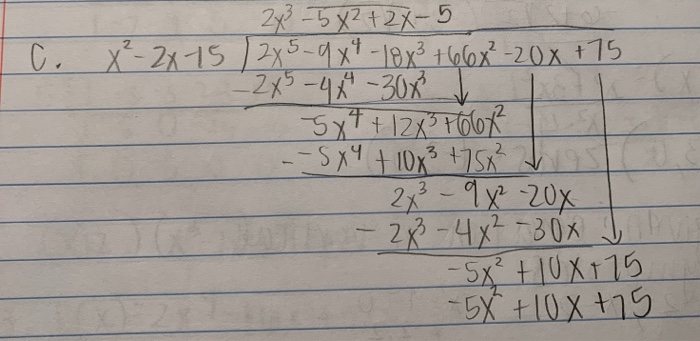 2x³ - 5x² + 2x - 5
C. x² - 2x - 15 ) 2x⁵ - 9x⁴ - 18x³ + 66x² - 20x + 75
- 2x⁵ - 4x⁴ - 30x³
-5x⁴ + 12x³ + 66x²
- -5x⁴ + 10x³ + 75x²
2x³ - 9x² - 20x
- 2x³ - 4x² - 30x
-5x² + 10x + 75
-5x² + 10x + 75